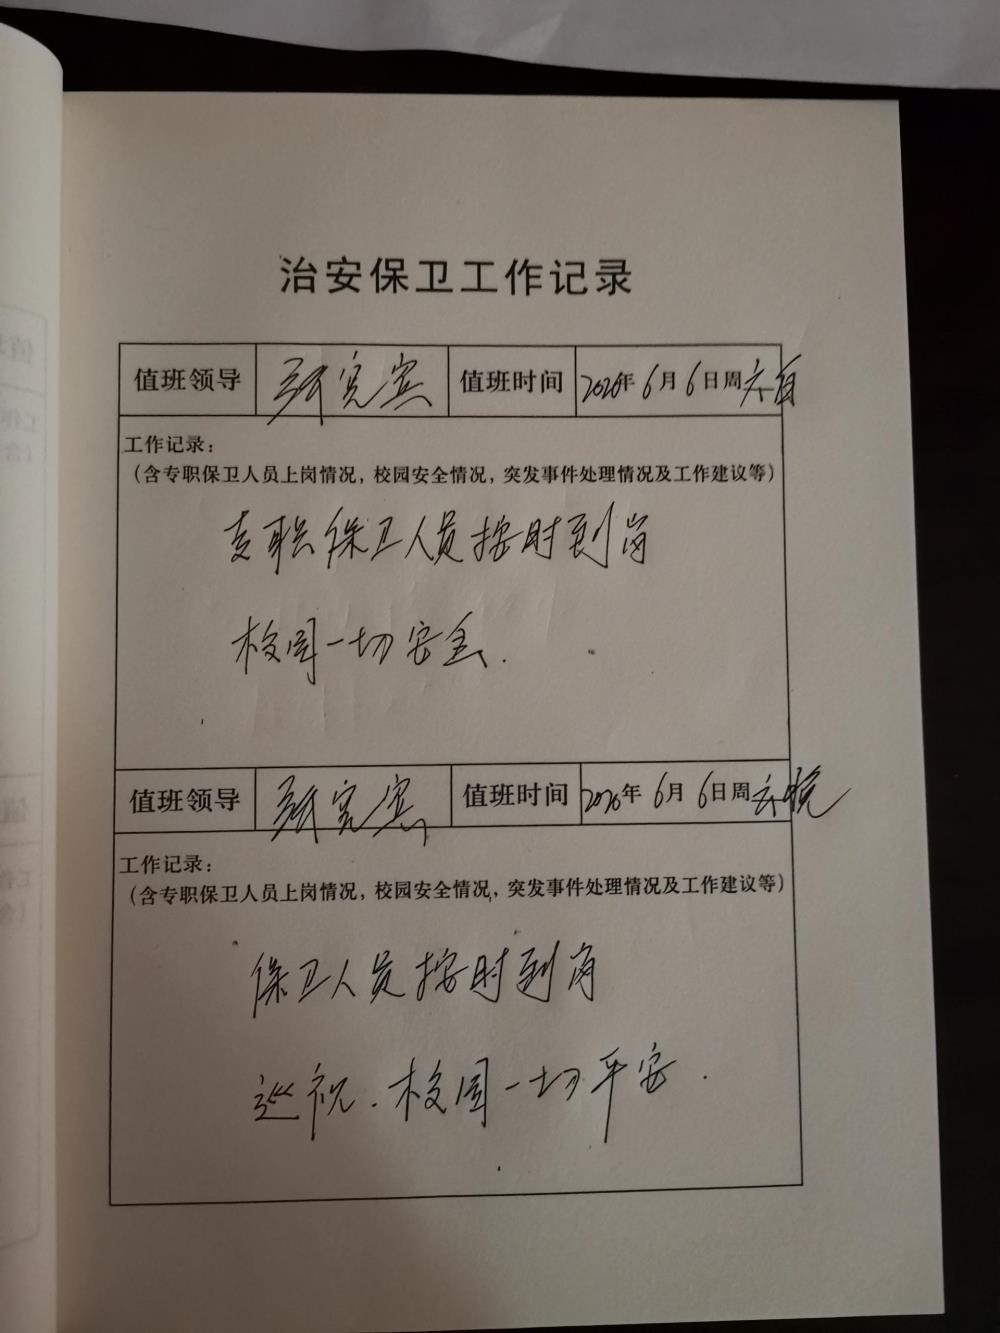 治安保卫工作记录
值班领导 张宪宾 值班时间 2020年6月6日周六白
工作记录：
（含专职保卫人员上岗情况，校园安全情况，突发事件处理情况及工作建议等）
专职保卫人员按时到岗
校园一切安全.
值班领导 张宪宾 值班时间 2020年6月6日周六晚
工作记录：
（含专职保卫人员上岗情况，校园安全情况，突发事件处理情况及工作建议等）
保卫人员按时到岗
巡视.校园一切平安.